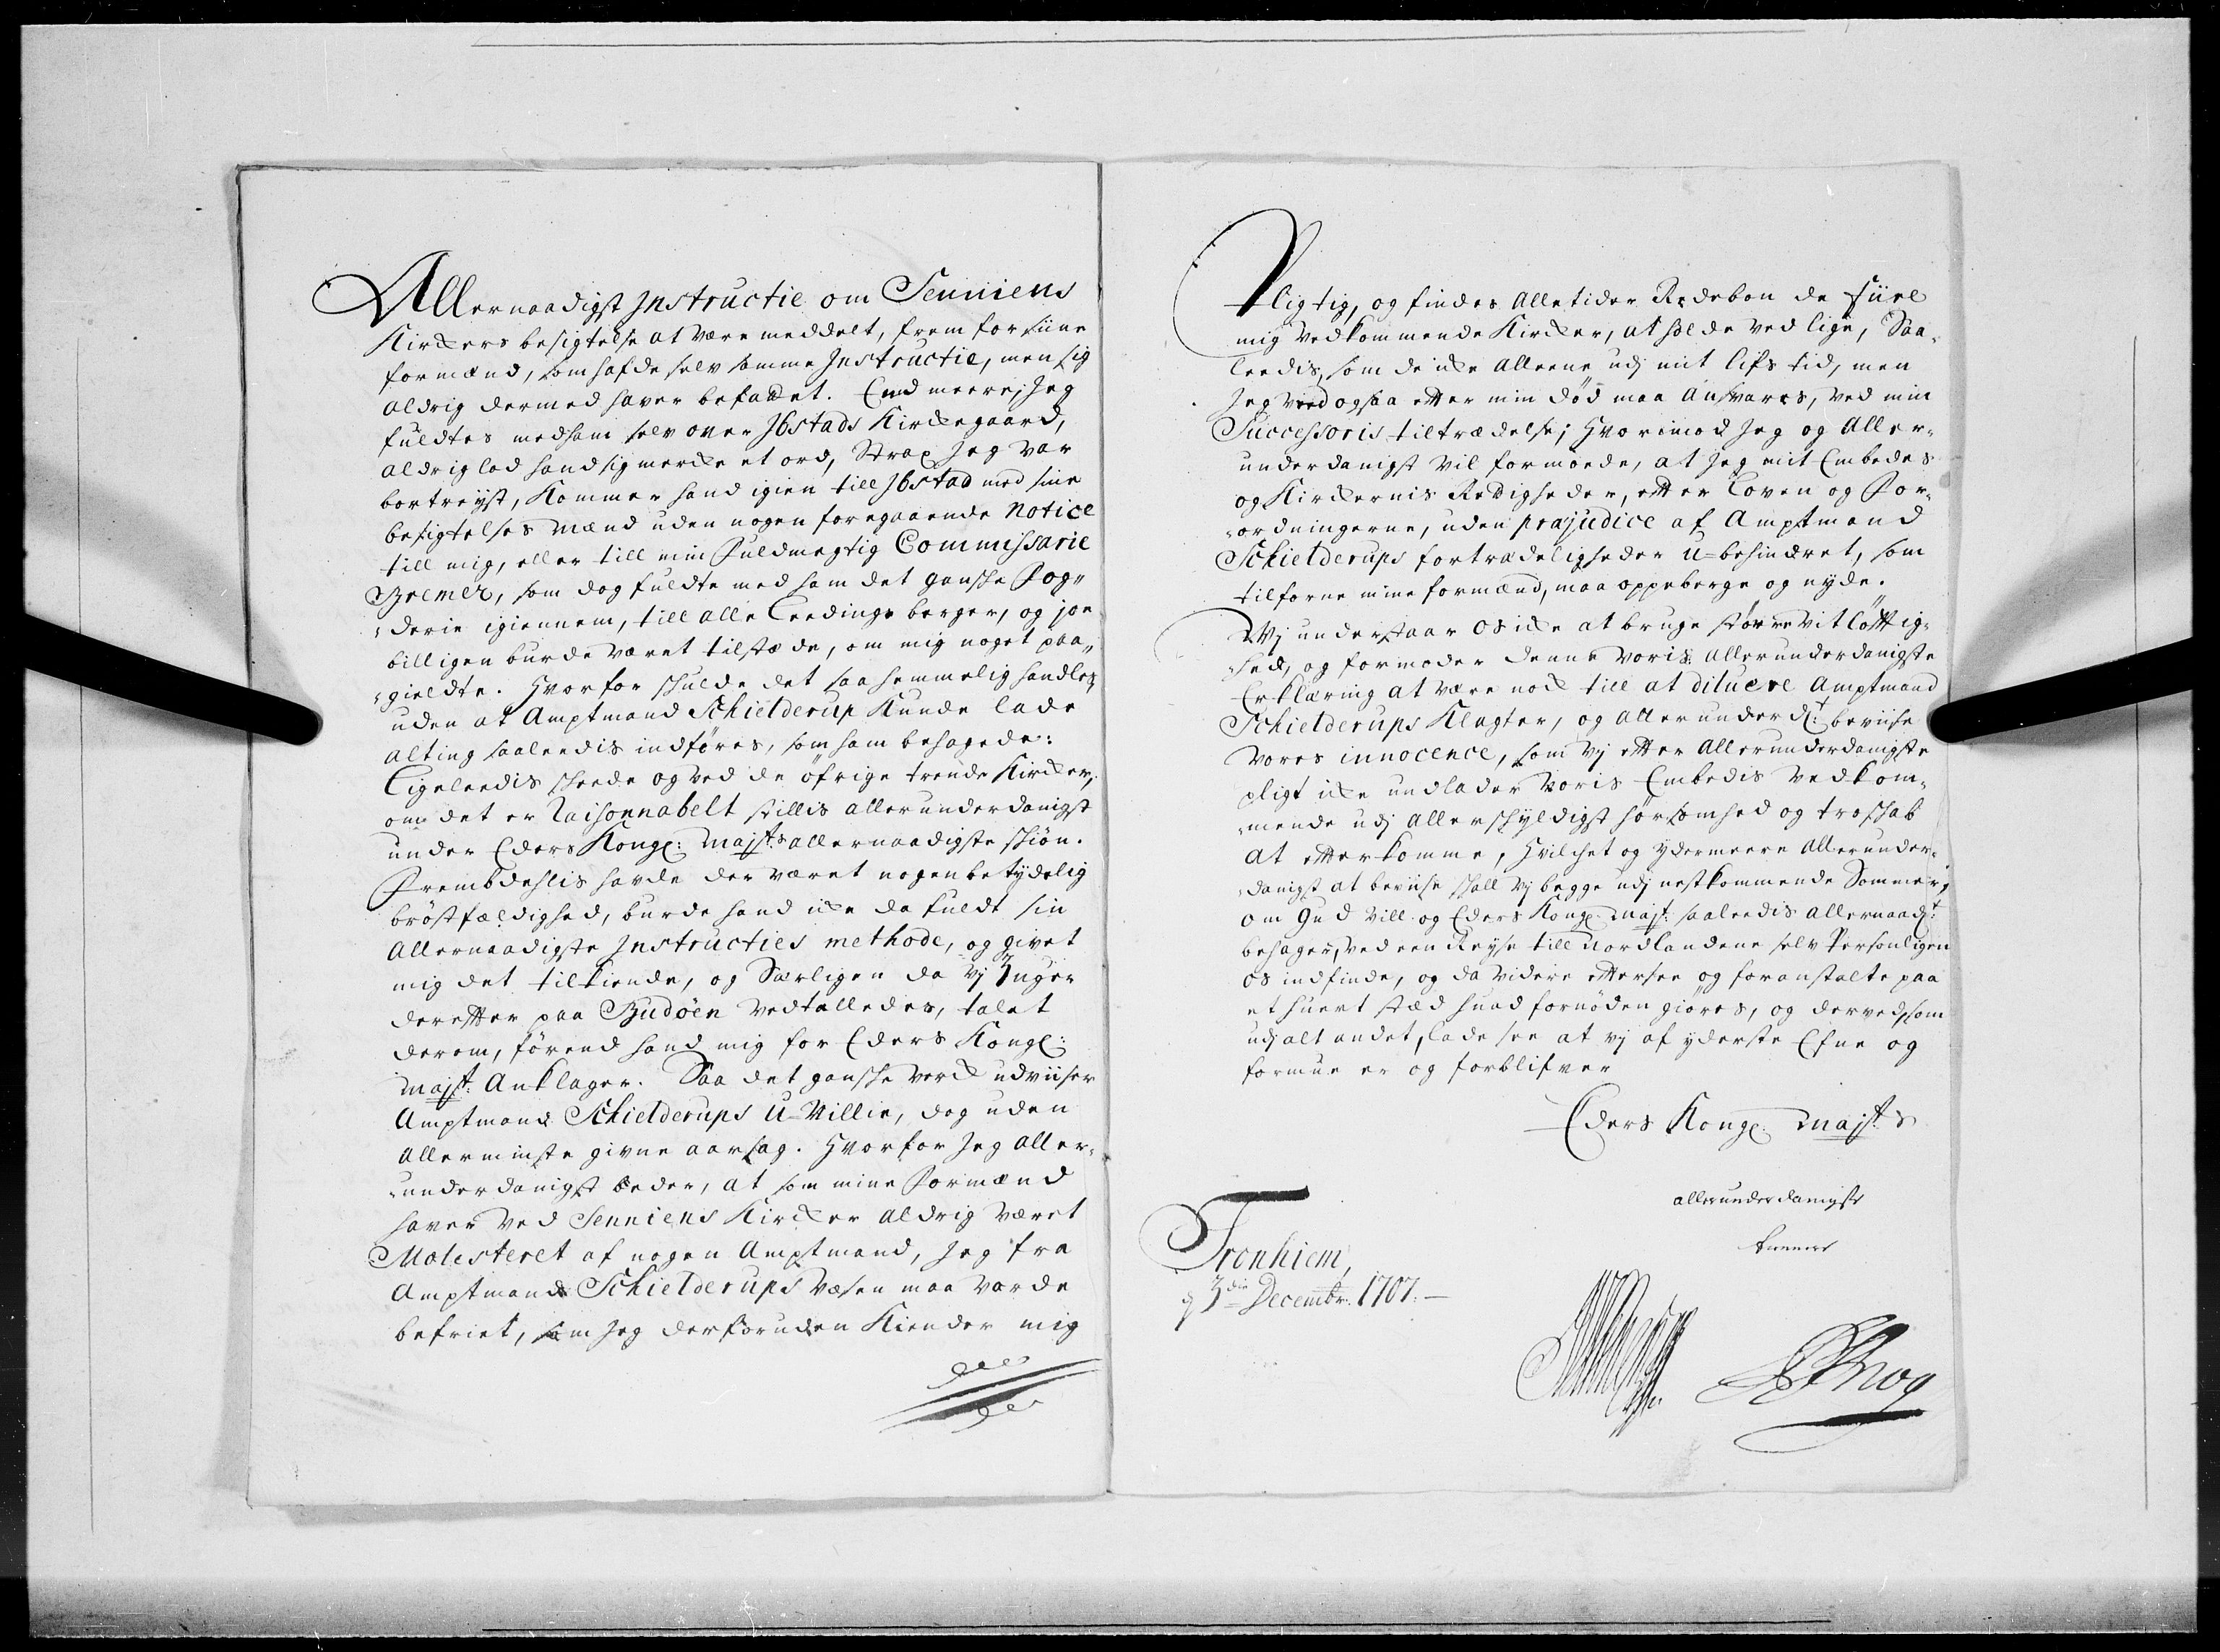 Allernaadigst Instructie om Senniens
Kirckers besigtelse at være meddelt, frem for siine
formænd, som hafde selv samme Instructie, men sig
aldrig dermed haver befattet. End meere, Jeg
fuldtes med ham selv over Ibstads Kirckegaard,
aldrig lod hand sig mercke et ord, Strax Jeg var
bortreyst, Kommer hand igien till Ibstad med sine
besigtelses mænd uden nogen foregaaende Notice
till mig, eller till min Fuldmegtig Commissarie
Bremer, som dog fuldte med ham det gansche Fog„
„derie igiennem, till alle Leedings berger, og jo
billigen burde været tilstæde, om mig noget paa„
„gieldte. Hvorfor schulde det saa hemmelig handles,
uden at Amptmand Schielderup Kunde lade
alting saaleedis indføres, som ham behagede:
Ligeleedis scheede og ved de øfrige trende Kircker,
om det er Raisonnabelt stillis allerunderdanigst
under Eders Kongl: Mayst:s allernaadigste schiøn.
Frembdehlis havde der været nogen betydelig
brøstfældighed, burde hand icke da fuldt sin
Allernaadigste Instructies methode, og givet
mig det tilkiende, og Særligen da vj 3 uger
deretter paa Budøen vedtalledes, talet
derom, førend hand mig for Eders Kongl:
Mayst: Anklager. Saa det gansche verck udviiser
Amptmand Schielderups U-Villie, dog uden
Allerminste givne aarsag. Hvorfor Jeg aller„
„underdanigst beder, at som mine Formænd
haver ved Senniens Kircker aldrig været
Molesteret af nogen Amptmand, Jeg fra
Amptmand Schielderups væsen maa vorde
befriet, som Jeg derforuden Kiender mig
Pligtig, og findes Alletider Redebon de fiire
mig vedkommende Kircker, at holde ved lige, Saa„
leedis, som de icke alleene udj mit lifs tid, men
Jeg ved ogsaa etter min død maa ansvares, ved min
Successoris tiltrædelse; Hvorimod Jeg og Aller„
underdanigst vil formoede, at Jeg mit Embedes
og Kirckernis Rettigheder, etter Loven og For„
„ordningerne, uden præjudice af Amptmand
Schielderups fortrædeligheder U-behindret, som
tilforne mine formænd, maa oppeberge og nyde.
Vj understaar os icke at bruge større vitløttig„
„hed, og formoder denne voris allerunderdanigste
Erklæring at være nock till at diluere Amptmand
Schielderups Klagter, og allerunderd:t beviise
vores innocence, som vj etter allerunderdanigste
pligt icke undlader voris Embedis vedkom„
„mende udj allerschyldigst hørsomhed og troschab
at etterkomme, Hvilchet og ydermeere Allerunder„
„danigst at beviise schall vj begge udj nestkommende Sommer,
om Gud vill og Eders Kongl: Mayst: saaleedis allernaad:t
behager, ved een Reyse till Nordlandene selv Personligen
os indfinde, og da videre ettersee og foranstalte paa
et huert stæd huad fornøden giøres, og derved, som
udj alt andet, lade see at vj af yderste Efne og
formue er og forblifver
Eders Kongl: Mayst:s
allerunderdanigste
tienner
Tronhiem,
d 3die Decembr: 1707. —